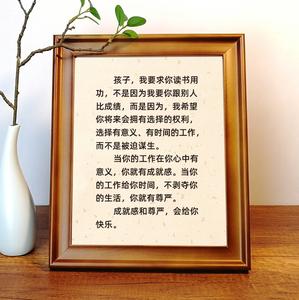 孩子，我要求你读书用
功，不是因为我要你跟别人
比成绩，而是因为，我希望
你将来会拥有选择的权利，
选择有意义、有时间的工作，
而不是被迫谋生。
当你的工作在你心中有
意义，你就有成就感。当你
的工作给你时间，不剥夺你
的生活，你就有尊严。
成就感和尊严，会给你
快乐。